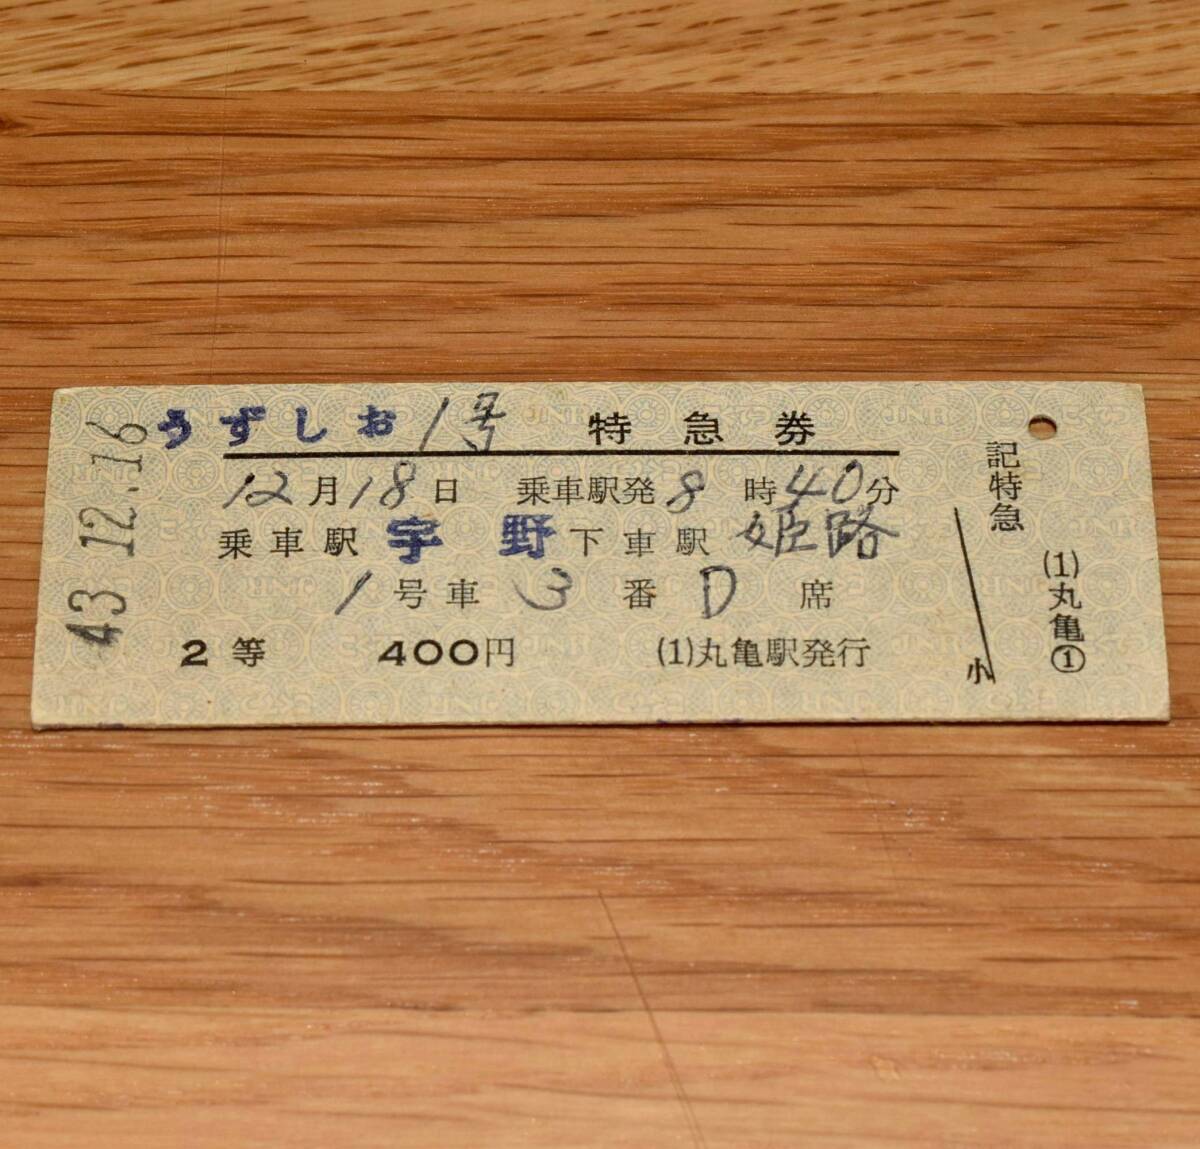 43.12.16
うずしお 1号 特急券
12月18日 乗車駅発8時40分
乗車駅 宇野 下車駅 姫路
1号車 3番 D席
2等 400円 (1)丸亀駅発行
記特急
小
(1)丸亀①